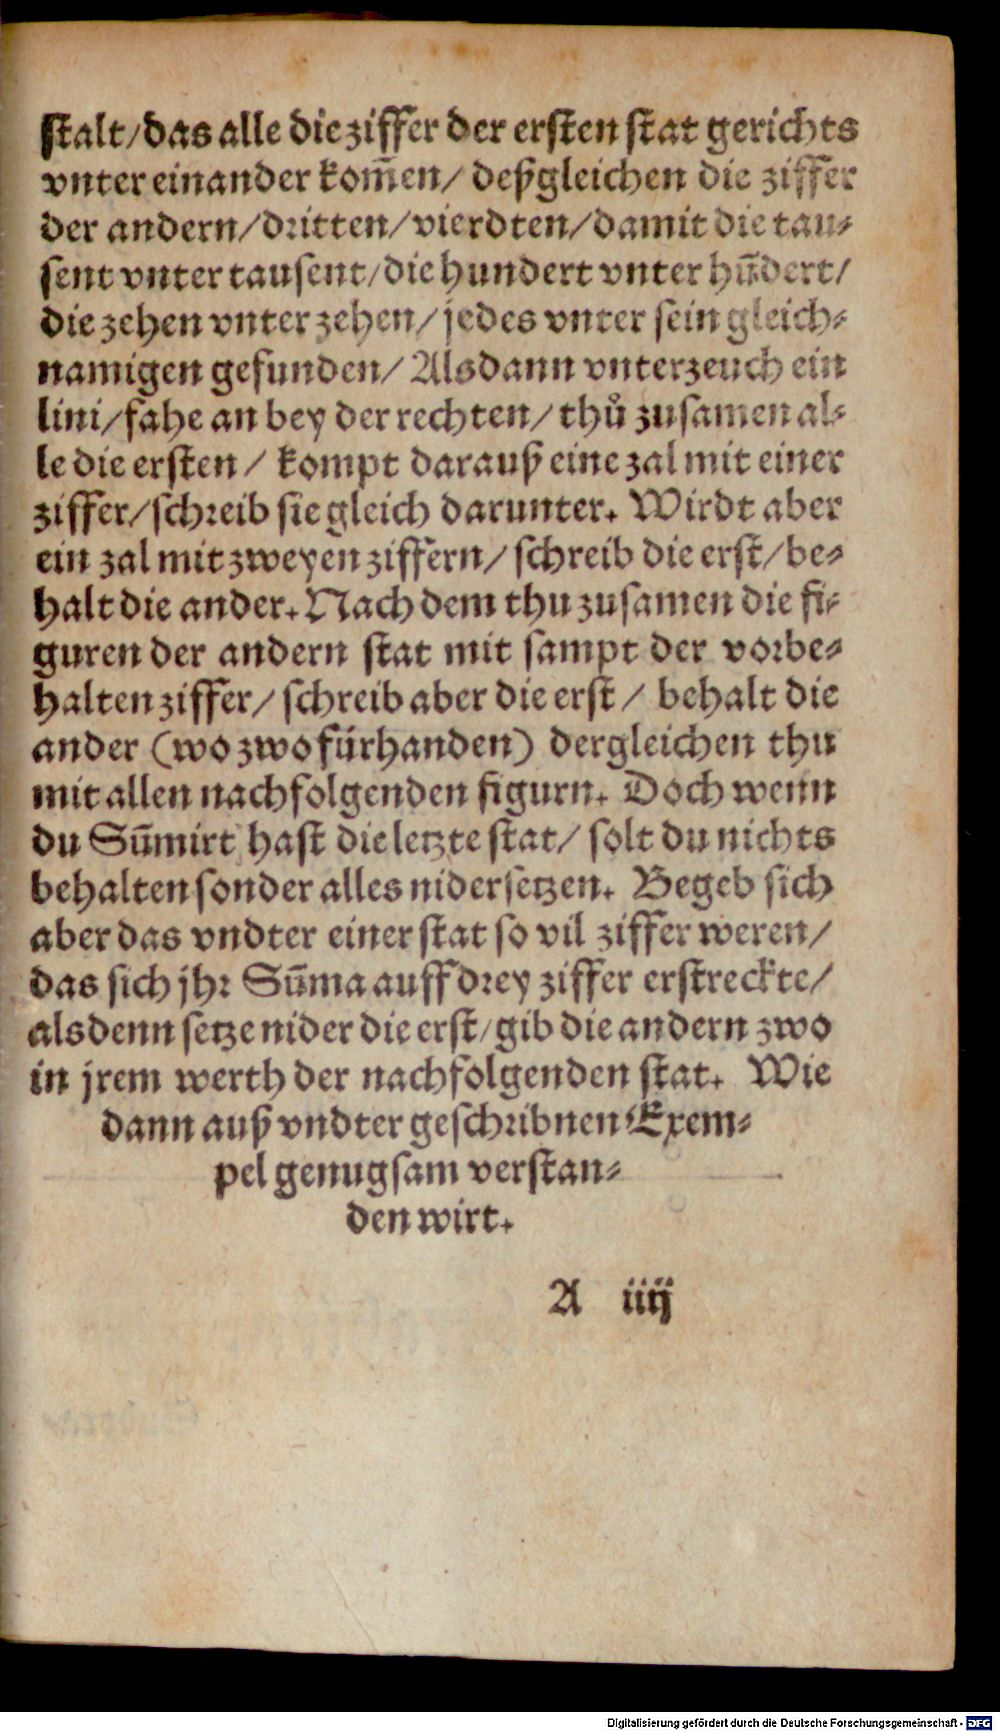 stalt/das alle die ziffer der ersten stat gerichts
vnter einander kom̄en/ deßgleichen die ziffer
der andern/dritten/vierdten/damit die tau⸗
sent vnter tausent/die hundert vnter hūdert/
die zehen vnter zehen/jedes vnter sein gleich⸗
namigen gefunden/ Alsdann vnterzeuch ein
lini/fahe an bey der rechten/thů zusamen al⸗
le die ersten/ kompt darauß eine zal mit einer
ziffer/schreib sie gleich darunter. Wirdt aber
ein zal mit zweyen ziffern/schreib die erst/be⸗
halt die ander. Nach dem thu zusamen die fi⸗
guren der andern stat mit sampt der vorbe⸗
halten ziffer/schreib aber die erst/ behalt die
ander (wo zwo fürhanden) dergleichen thu
mit allen nachfolgenden figurn. Doch wenn
du Sūmirt hast die letzte stat/ solt du nichts
behalten sonder alles nidersetzen. Begeb sich
aber das vndter einer stat so vil ziffer weren/
das sich jhr Sūma auff drey ziffer erstreckte/
alsdenn setze nider die erst/gib die andern zwo
in jrem werth der nachfolgenden stat. Wie
dann auß vndter geschribnen Exem⸗
pel genugsam verstan⸗
den wirt.
A iiij
Digitalisierung gefördert durch die Deutsche Forschungsgemeinschaft - DFG